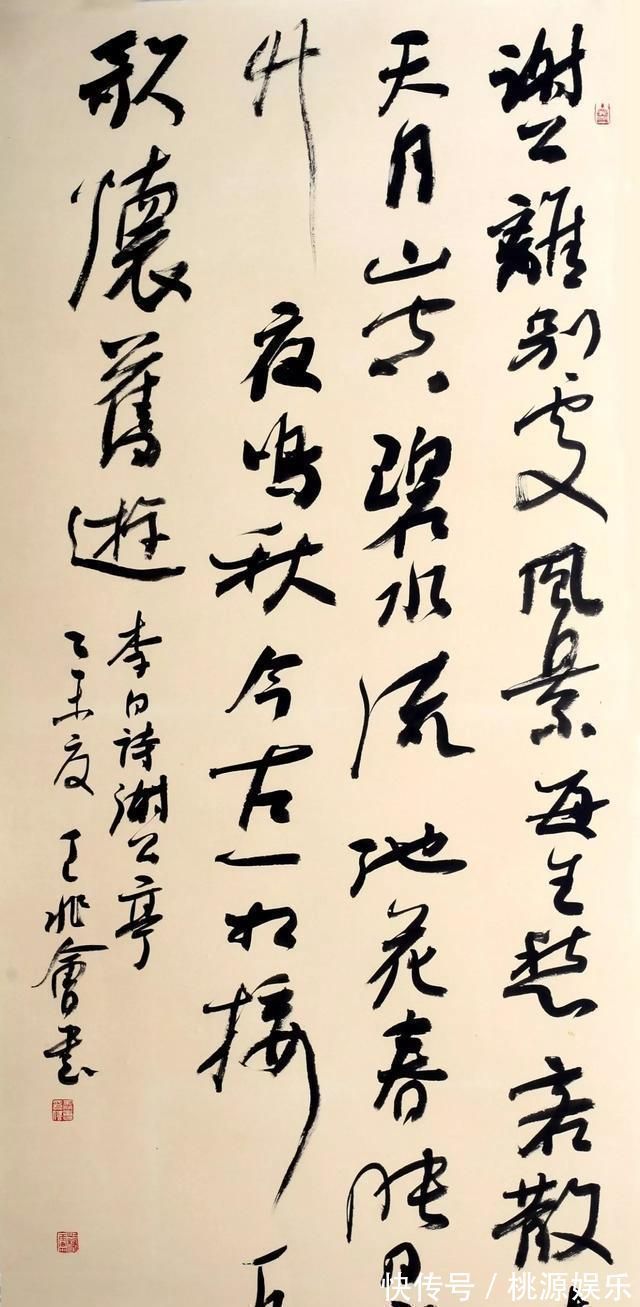 謝公離別處風景每生愁客散
天月山空碧水流池花春映日
竹夜鳴秋今古一相接
歌懷舊遊
李白詩謝公亭
乙未夏王兆會書
快传号 / 桃源娱乐